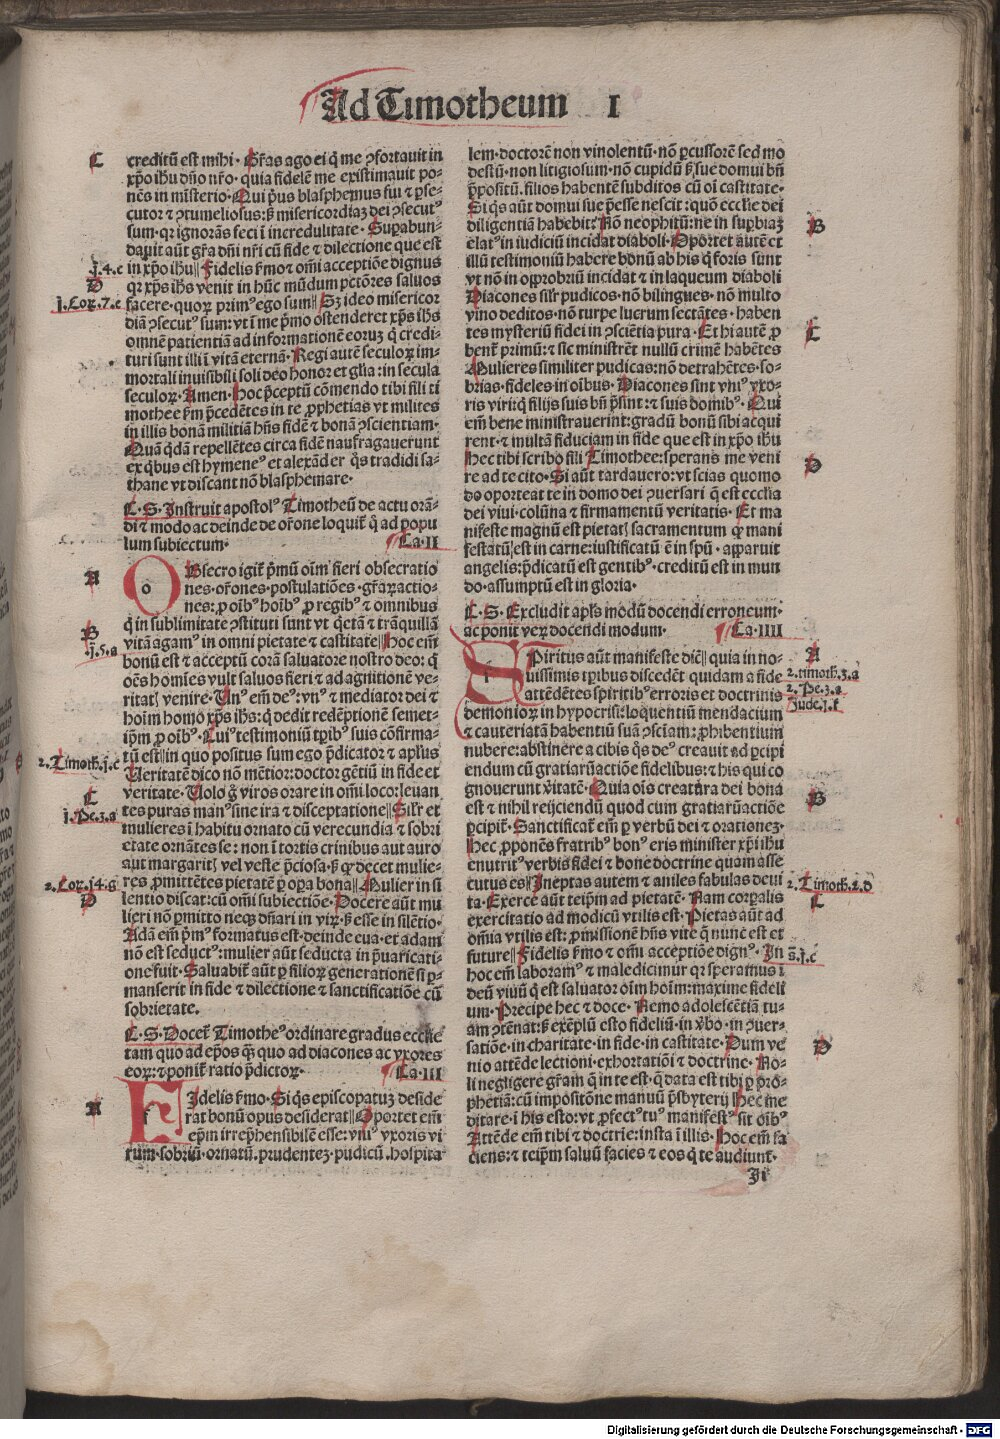 Ad Timotheum I
C
creditū est mihi. Gr̄as ago ei q̄ me ꝯfortauit in
xp̄o ihu dn̄o nr̄o. quia fidelē me existimauit po-
nēs in mīsterio. Qui p̄us blasphemus fui ⁊ ꝑse-
cutor ⁊ ꝯtumeliosus: sꝫ misericordiaꝫ dei ꝯsecutꝰ
sum. qꝛ ignorās feci ī incredulitate. Suꝑabun-
dauit aūt gr̄a dn̄i nr̄i cū fide ⁊ dilectione que est
j.4.c
in xp̄o ihu Fidelis ẜmo ⁊ om̄i acceptiōe dignus
D
qꝛ xp̄s ihs venit in hūc mūdum pctōres saluos
j.Coꝛ.7.e
facere. quoꝝ primꝰ ego sum Sꝫ ideo misericor
diā ꝯsecutꝰ sum: vt ī me p̄mo ostenderet xp̄s ihs
omnē patientiā ad informationē eoruꝫ q̄ credi-
turi sunt illi in vitā eternā. Regi autē seculoꝝ im-
mortali inuisibili soli deo honor et gl̄ia: in secula
seculoꝝ. Amen. Hoc p̄ceptū cōmendo tibi fili ti
mothee ẜm p̄cedētes in te ꝓphetias vt milites
in illis bonā militiā hn̄s fidē ⁊ bonā ꝯscientiam.
Quā qͥdā repellētes circa fidē naufragauerunt
ex qͥbus est hymeneꝰ et alexāder. qͦs tradidi sa-
thane vt discant nō blasphemare.
C. S. Instruit apostolꝰ Timotheū de actu orā-
di ⁊ modo ac deinde de or̄one loquit᷑ qͣ ad popu
lum subiectum. Ca.II
A
OBsecro igit᷑ p̄mū oīm fieri obsecratio
nes. or̄ones. postulatiōes. gr̄aꝝ actio-
nes: ꝓ oībꝰ hoībꝰ ꝓ regibꝰ ⁊ omnibus
q̄ in sublimitate ꝯstituti sunt vt qͥetā ⁊ trāquillā
B
vitā agamꝰ in omni pietate ⁊ castitate Hoc em̄
j.5.a
bonū est ⁊ acceptū corā saluatore nostro deo: q̄
oēs homīes vult saluos fieri ⁊ ad agnitionē ve-
ritatꝭ venire. Unꝰ em̄ deꝰ: vnꝰ ⁊ mediator dei ⁊
hoīm homo xp̄s ihs: q̄ dedit redēptionē semet-
ip̄m ꝓ oībꝰ. Cuiꝰ testimoniū tp̄ibꝰ suis cōfirma-
2.Timoth.j.c
tū est in quo positus sum ego p̄dicator ⁊ apl̄us
Ueritatē dico nō mētior: doctor gētiū in fide et
C
veritate. Uolo ḡ viros orare in om̄i loco: leuan
j.Pe.3.a
tes puras manꝰ sine ira ⁊ disceptatione Sil̄r et
mulieres ī habitu ornato cū verecundia ⁊ sobri
etate ornātes se: non ī tortis crinibus aut auro
aut margaritꝭ vel veste p̄ciosa. sꝫ qͦ decet mulie-
2.Coꝛ.j4.g
res ꝓmittētes pietatē ꝑ oꝑa bona Mulier in si
D
lentio discat: cū om̄i subiectiōe. Docere aūt mu
lieri nō ꝑmitto neqꝫ dn̄ari in virꝫ. sꝫ esse in silētio.
Adā em̄ p̄mꝰ formatus est. deinde eua. et adam
nō est seductꝰ: mulier aūt seducta in p̄uaricati-
one fuit. Saluabit᷑ aūt ꝑ filioꝝ generationē si ꝑ-
manserit in fide ⁊ dilectione ⁊ sanctificatiōe cū
sobrietate.
C. S. Docet᷑ Timotheꝰ ordinare gradus eccl̄ie
tam quo ad ep̄os qͣꝫ quo ad diacones ac vxores
eoꝝ: ⁊ ponit᷑ ratio p̄dictoꝝ. Ca.III
A
FIdelis ẜmo. Si qͥs episcopatuꝫ deside
rat bonū opus desiderat Oportet em̄
ep̄m irrep̄hensibilē esse: vniꝰ vxoris vi
rum. sobriū. ornatū. prudenteꝫ. pudicū. hospita
lem. doctorē non vinolentū. nō ꝑcussorē sed mo
destū. non litigiosum. nō cupidū sꝫ sue domui bn̄
p̄positū. filios habentē subditos cū oī castitate.
Si qͥs aūt domui sue p̄esse nescit: quō eccl̄ie dei
B
diligentiā habebit: Nō neophitū: ne in suꝑbiaꝫ
elatꝰ in iudiciū incidat diaboli. Oportet autē et
illū testimoniū habere bonū ab his q̄ foris sunt
vt nō in opprobriū incidat ⁊ in laqueum diaboli
Diacones sil̄r pudicos. nō bilingues. nō multo
vino deditos. nō turpe lucrum sectātes. haben
C
tes mysteriū fidei in ꝯsciētia pura. Et hi autē ꝓ
bent᷑ primū: ⁊ sic ministrēt nullū crimē habētes
Mulieres similiter pudicas: nō detrahētes. so-
brias. fideles in oībus. Diacones sint vniꝰ vxo-
ris viri: q̄ filijs suis bn̄ p̄sint: ⁊ suis domibꝰ. Qui
em̄ bene ministrauerint: gradū bonū sibi acqui
rent. ⁊ multā fiduciam in fide que est in xp̄o ihu
D
Hec tibi scribo fili Timothee: sperans me veni
re ad te cito. Si aūt tardauero: vt scias quomo
do oporteat te in domo dei ꝯuersari q̄ est eccl̄ia
dei viui. colūna ⁊ firmamentū veritatis. Et ma
nifeste magnū est pietatꝭ sacramentum qͦ mani
festatū est in carne: iustificatū ē in sp̄u. apparuit
angelis: p̄dicatū est gentibꝰ. creditū est in mun
do. assumptū est in gloria.
C. S. Excludit apl̄s modū docendi erroneum.
ac ponit veꝝ docendi modum. Ca.IIII
A
SPiritus aūt manifeste dic̄ quia in no-
2.timoth.3.a
uissimis tp̄ibus discedēt quidam a fide
2.Pe.3.a
attēdētes spiritibꝰ erroris et doctrinis
Jude.j.f
demonioꝝ in hypocrisi: loquentiū mendacium
⁊ cauteriatā habentiū suā ꝯsciam: ꝓhibentium
nubere: abstinere a cibis qͦs deꝰ creauit ad ꝑcipi
endum cū gratiaꝝ actiōe fidelibus: ⁊ his qui co
gnouerunt v̄itatē. Quia oīs creatura dei bona
B
est ⁊ nihil reijciendū quod cum gratiaꝝ actiōe
ꝑcipit᷑. Sanctificat᷑ em̄ ꝑ verbū dei ⁊ orationeꝫ.
Hec ꝓponēs fratribꝰ bonꝰ eris minister xp̄i ihu
enutritꝰ verbis fidei ⁊ bone doctrine quam asse
2.Timoth.2.d
cutus es Ineptas autem ⁊ aniles fabulas deui
C
ta. Exerce aūt teip̄m ad pietatē. Nam corꝑalis
exercitatio ad modicū vtilis est. Pietas aūt ad
om̄ia vtilis est: ꝓmissionē hn̄s vite q̄ nunc est et
future Fidelis ẜmo ⁊ om̄i acceptiōe dignꝰ. In
s̄.j.c
hoc em̄ laboramꝰ ⁊ maledicimur qꝛ speramus ī
deū viuū q̄ est saluator oīm hoīm: maxime fideli
um. Precipe hec ⁊ doce. Nemo adolescētiā tu-
am ꝯtēnat: sꝫ exēplū esto fideliū. in v̄bo. in ꝯuer-
D
satiōe. in charitate. in fide. in castitate. Dum ve
nio attēde lectioni. exhortatiōi ⁊ doctrine. No-
li negligere gr̄am q̄ in te est. q̄ data est tibi ꝑ ꝓ-
phetiā: cū impositōne manuū p̄sbyterij Hec me
ditare. ī his esto: vt ꝓfectꝰ tuꝰ manifestꝰ sit oībꝰ
Attēde em̄ tibi ⁊ doctrīe: insta ī illis. Hoc em̄ fa
ciens: ⁊ teip̄m saluū facies ⁊ eos q̄ te audiunt.
Ji
Digitalisierung gefördert durch die Deutsche Forschungsgemeinschaft - DFG